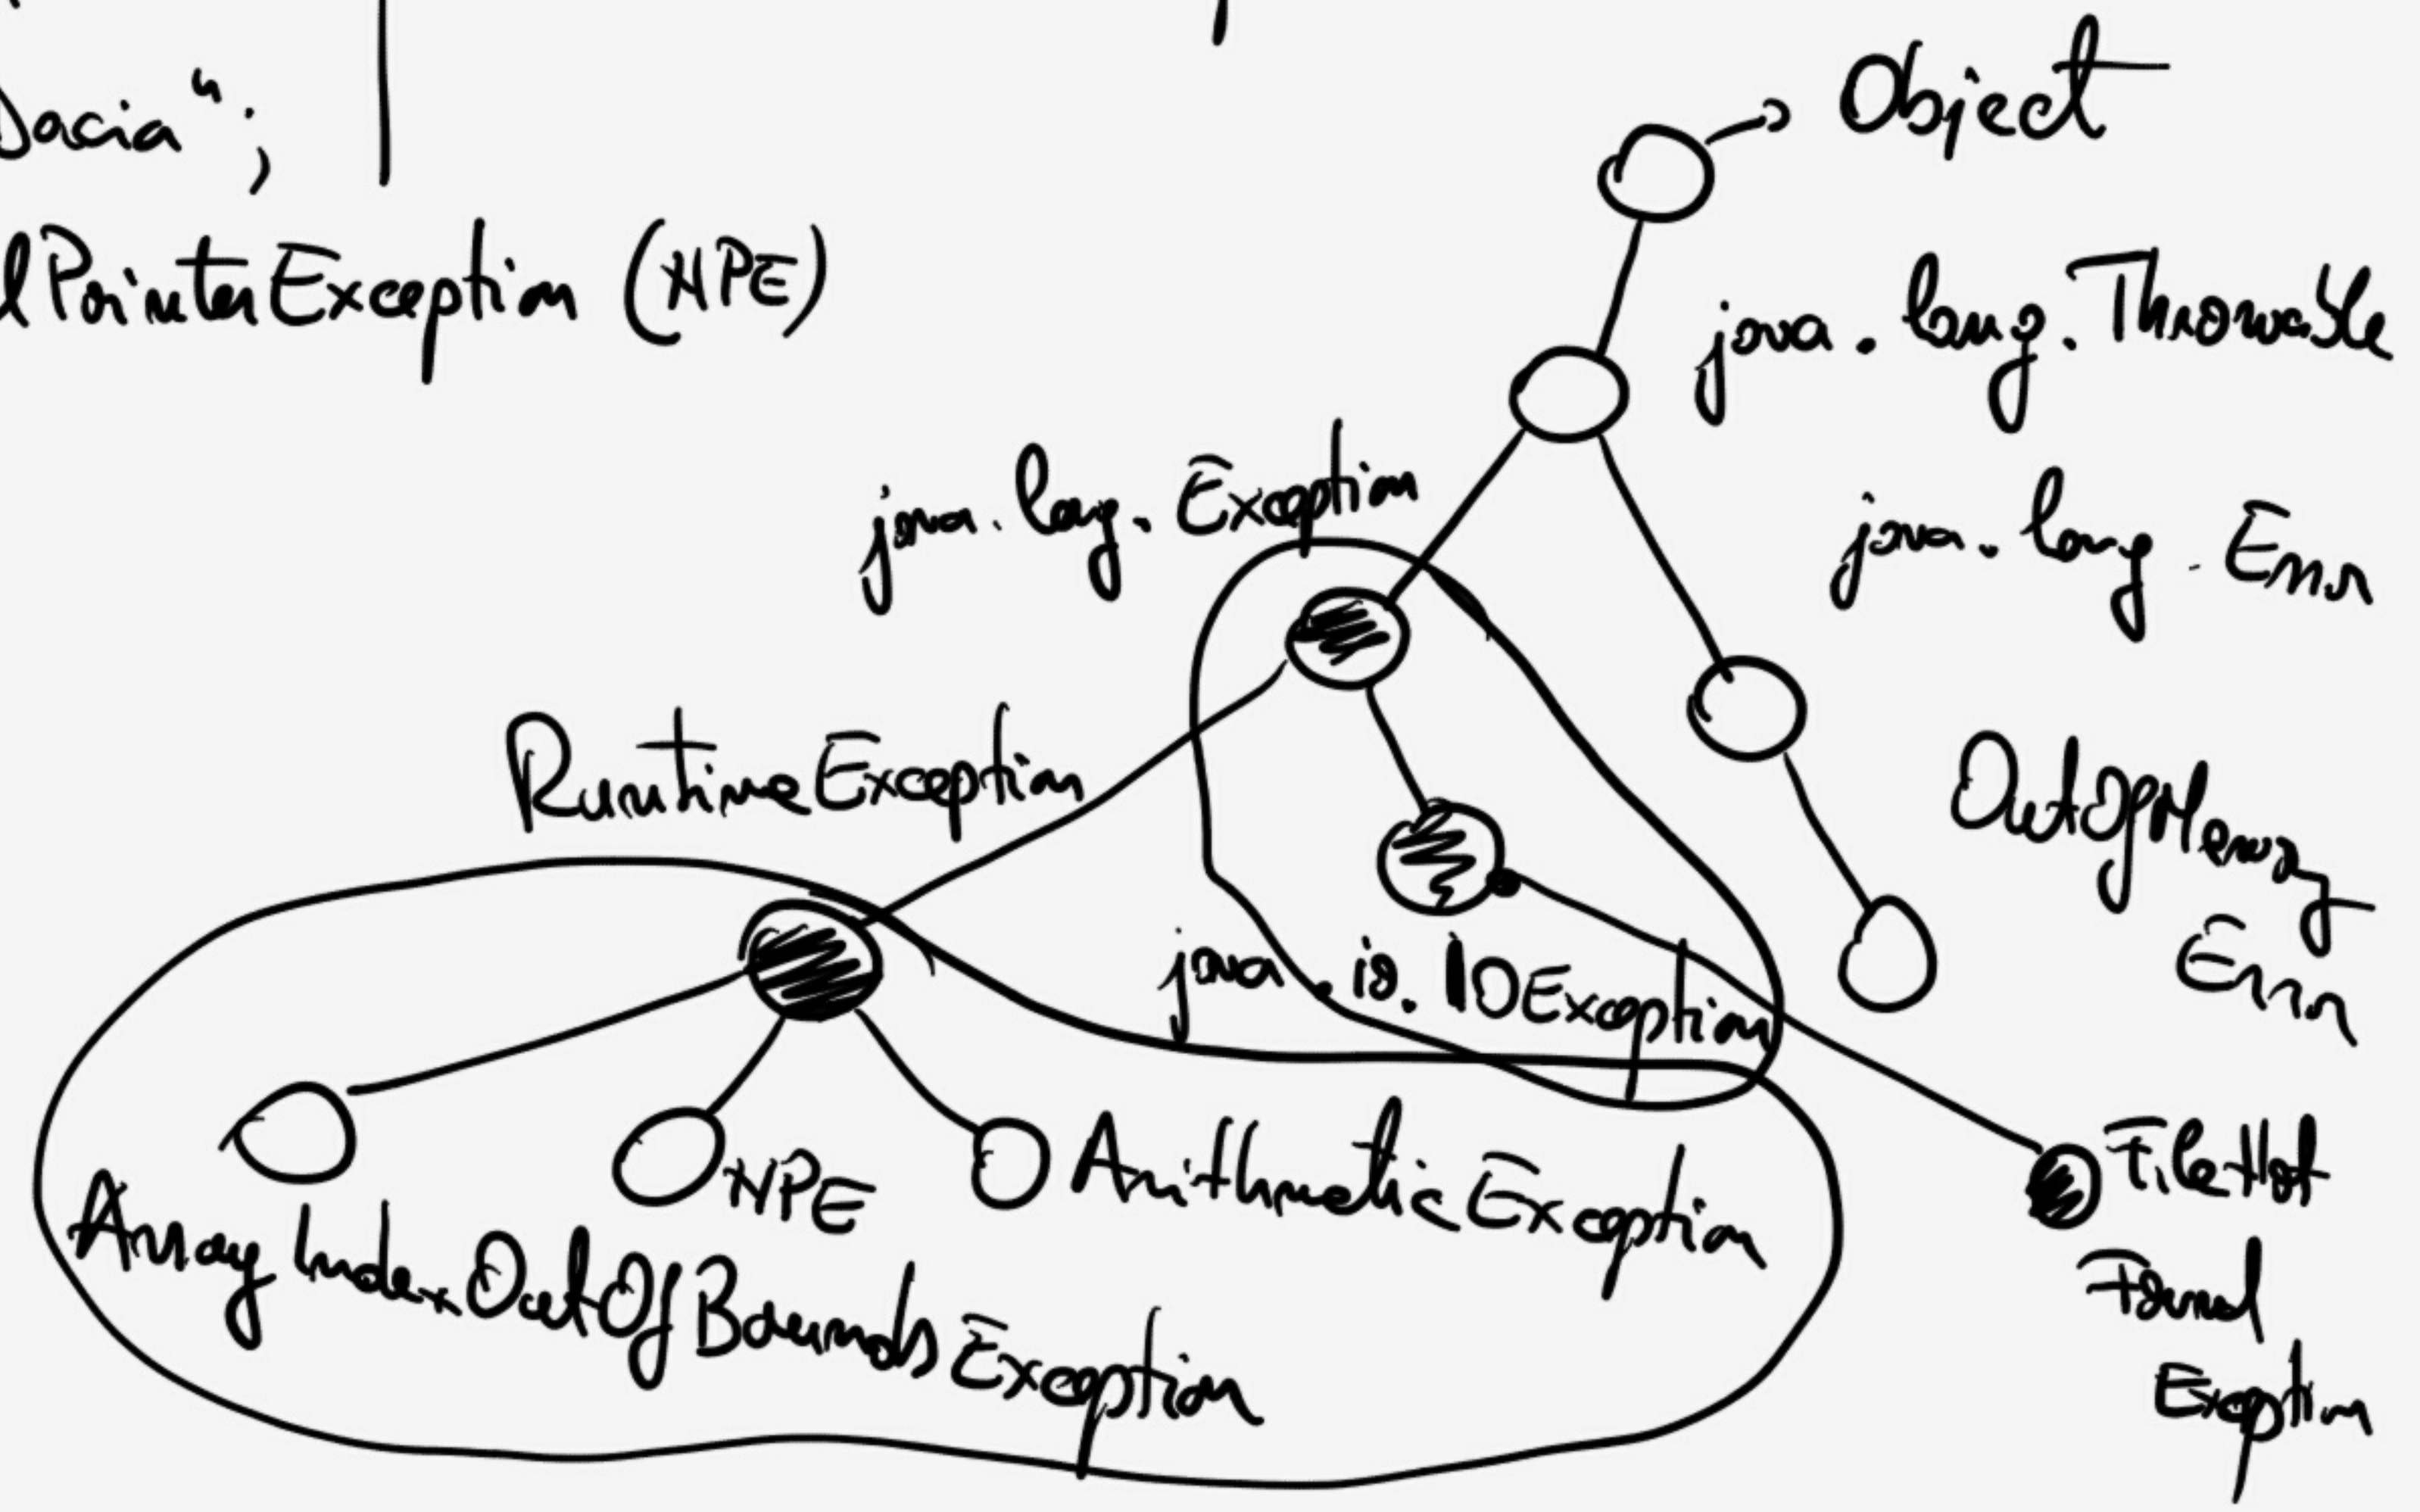 Dacia";
lPointerException (NPE)
Object
java.lang.Throwable
java.lang.Exception
java.lang.Error
RuntimeException
OutOfMemory
Error
java.io.IOException
NPE
ArithmeticException
FileNot
Found
Exception
ArrayIndexOutOfBoundsException